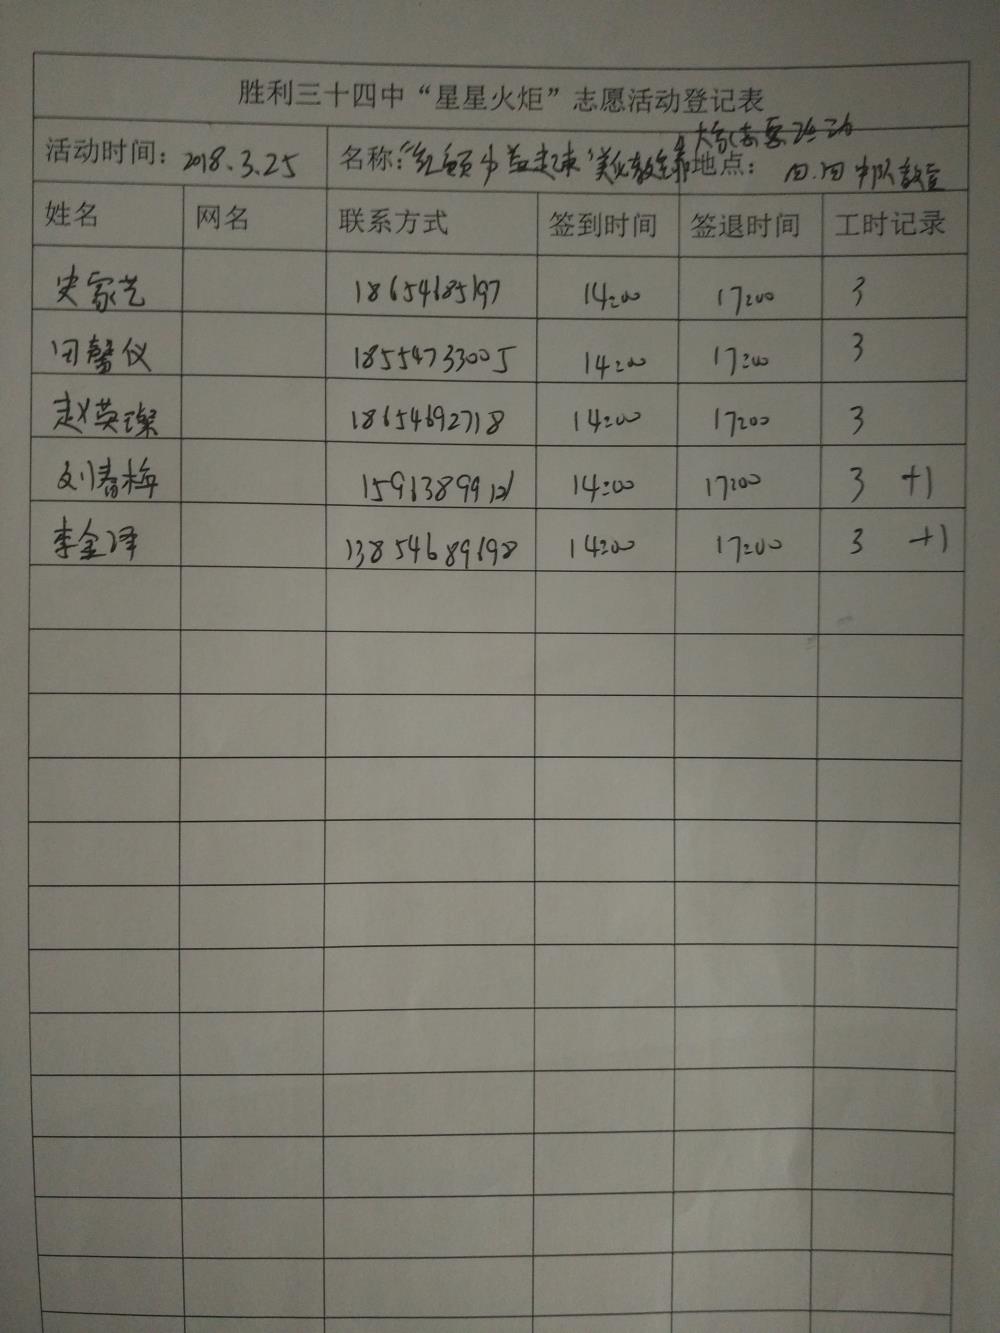 胜利三十四中“星星火炬”志愿活动登记表
活动时间：2018.3.25 名称：“红领巾益起来”美化教室 地点：四.四中队教室
姓名 网名 联系方式 签到时间 签退时间 工时记录
史家艺 18654685197 14:00 17:00 3
田馨仪 18554733005 14:00 17:00 3
赵英璨 18654692718 14:00 17:00 3
刘春梅 14:00 17:00 3 +1
李金泽 13854689698 14:00 17:00 3 +1